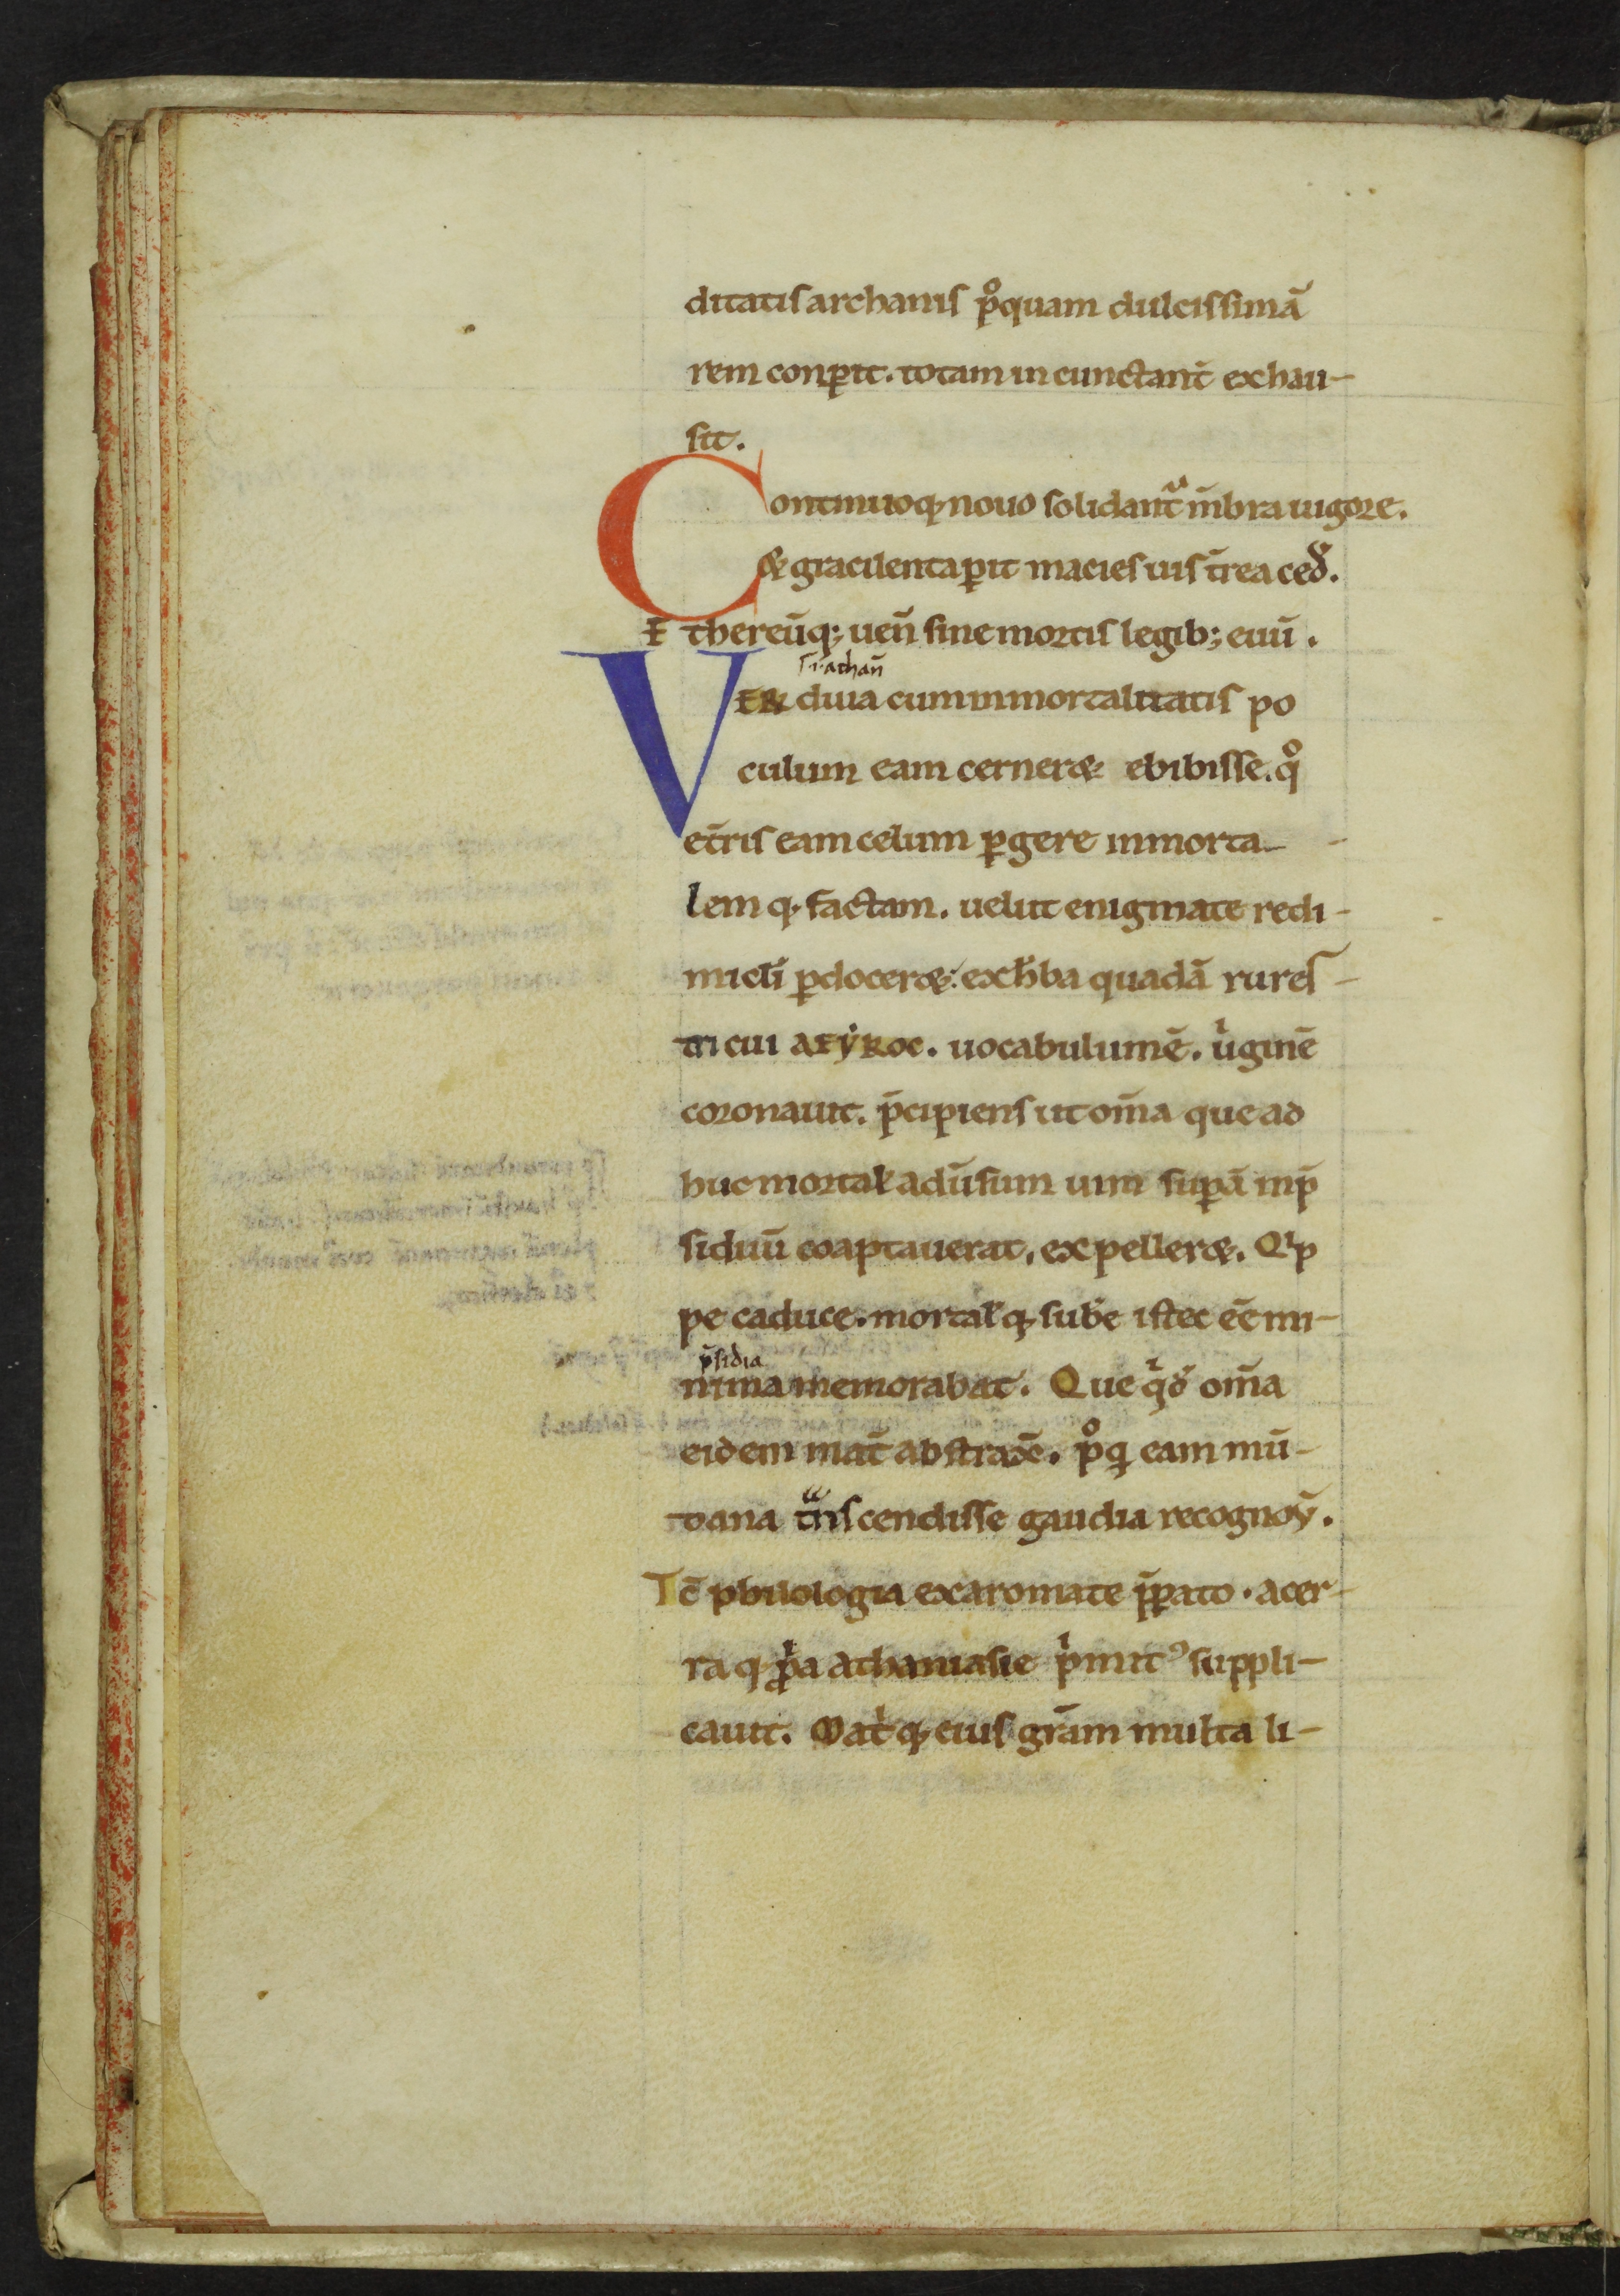 ditatis archanis p̊quam dulcissimā
rem conꝑit. totam in cunctant̄ exhau-
sit.
Continuoq; nouo solidant̃ m̄bra uigore.
& gracilenta ꝑit macies uis t̄rea ced̃.
E thereūq; uen̄ sine mortis legib; euū.
s. i. athan̄
VER diua cum inmortalitatis po
culum eam cerner& ebibisse. q̊
et̄ris eam celum ꝑgere inmorta-
lem q; factam. uelut enigmate redi-
mic̄li ꝑdocer&. ex h̄ba quadā rures-
tri cui AEYZOC. uocabulum ē. uͥginē
coronauit. p̄cipiens ut om̄a que ad
huc mortal̄ adūsum uim suꝑā inp̄
sidiuū coaptauerat, expeller&. Qͥp
pe caduce. mortal̄q; sub̄e istec eē mi-
p̄sidia
nima memorabat. Que qͥd̃ om̄a
eidem mat̄ abstrax̄. p̊q̃ eam mū-
dana tͣnscendisse gaudia recognoṽ.
Tc̄ philologia ex aromate p̄ꝑato. acer-
ra q; ꝓͥa athanasie pͥmitꝰ suppli-
cauit. Mat̄q; eius gr̄am multa li-